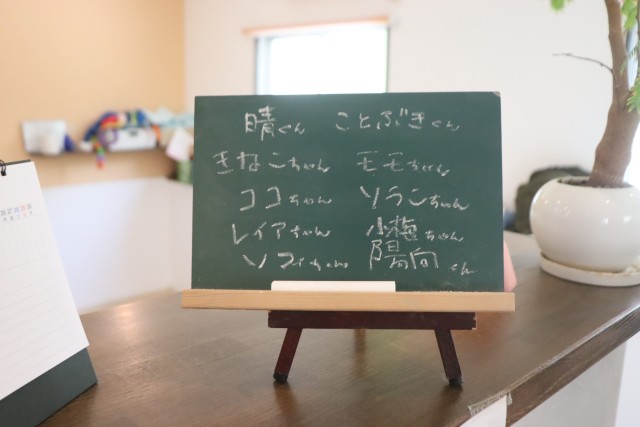 晴くん ことぶきくん
きなこちゃん モモちゃん
ココちゃん ソランちゃん
レイアちゃん 小梅ちゃん
ソフィちゃん 陽向くん